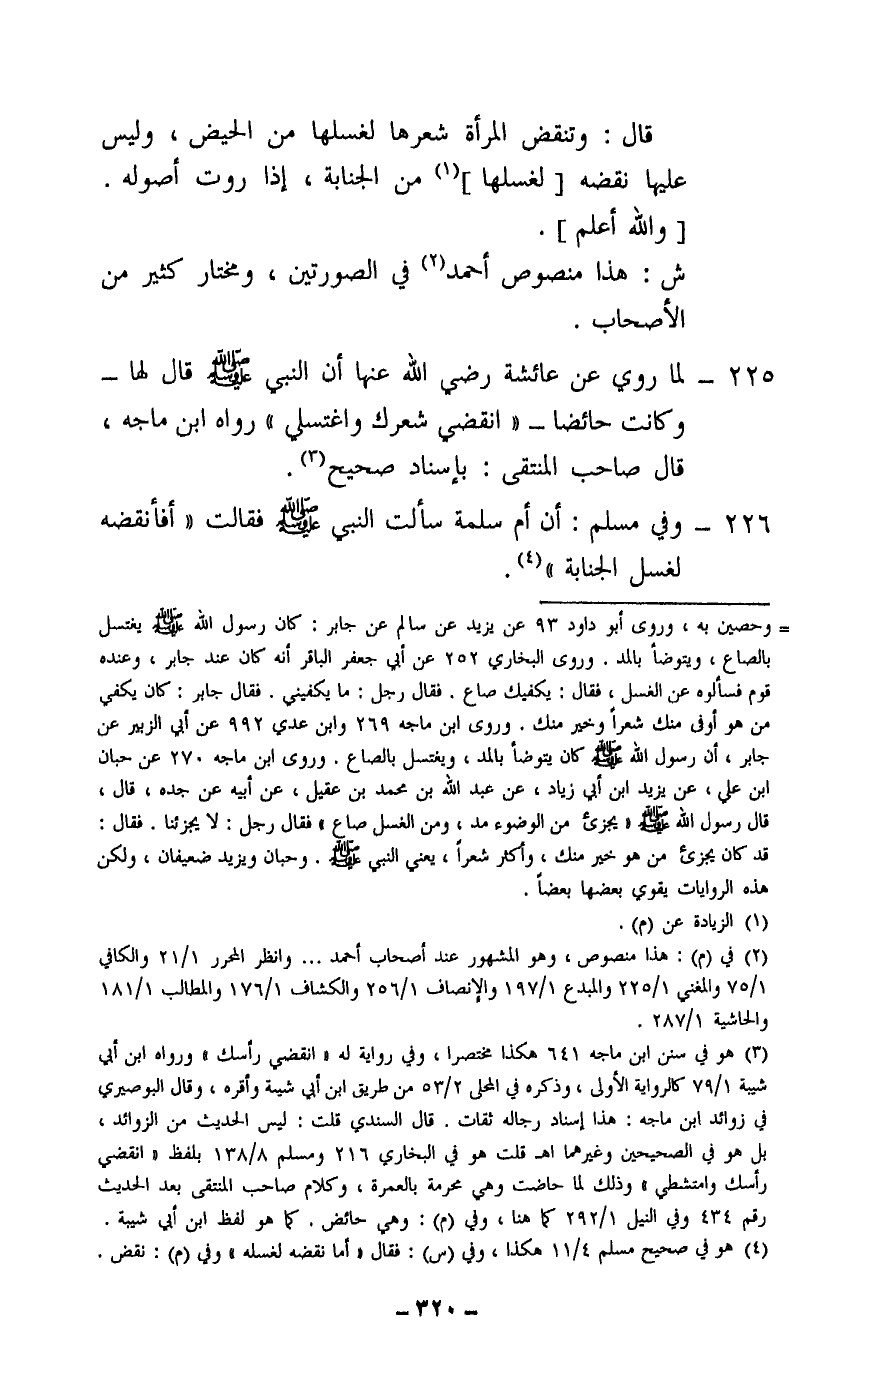 قال : وتنقض المرأة شعرها لغسلها من الحيض ، وليس
عليها نقضه [ لغسلها ](١) من الجنابة ، إذا روت أصوله .
[ والله أعلم ] .
ش : هذا منصوص أحمد(٢) في الصورتين ، ومختار كثير من
الأصحاب .
٢٢٥ ــ لما روي عن عائشة رضي الله عنها أن النبي ﷺ قال لها ــ
وكانت حائضا ــ « انقضي شعرك واغتسلي » رواه ابن ماجه ،
قال صاحب المنتقى : بإسناد صحيح(٣) .
٢٢٦ ــ وفي مسلم : أن أم سلمة سألت النبي ﷺ فقالت « أفأنقضه
لغسل الجنابة »(٤) .
= وحصين به ، وروى أبو داود ٩٣ عن يزيد عن سالم عن جابر : كان رسول الله ﷺ يغتسل
بالصاع ، ويتوضأ بالمد . وروى البخاري ٢٥٢ عن أبي جعفر الباقر أنه كان عند جابر ، وعنده
قوم فسألوه عن الغسل ، فقال : يكفيك صاع . فقال رجل : ما يكفيني . فقال جابر : كان يكفي
من هو أوفى منك شعراً وخير منك . وروى ابن ماجه ٢٦٩ وابن عدي ٩٩٢ عن أبي الزبير عن
جابر ، أن رسول الله ﷺ كان يتوضأ بالمد ، ويغتسل بالصاع . وروى ابن ماجه ٢٧٠ عن حبان
ابن علي ، عن يزيد ابن أبي زياد ، عن عبد الله بن محمد بن عقيل ، عن أبيه عن جده ، قال ،
قال رسول الله ﷺ « يجزئ من الوضوء مد ، ومن الغسل صاع » فقال رجل : لا يجزئنا . فقال :
قد كان يجزئ من هو خير منك ، وأكثر شعراً ، يعني النبي ﷺ . وحبان ويزيد ضعيفان ، ولكن
هذه الروايات يقوي بعضها بعضاً .
(١) الزيادة عن (م) .
(٢) في (م) : هذا منصوص ، وهو المشهور عند أصحاب أحمد ... وانظر المحرر ٢١/١ والكافي
٧٥/١ والمغني ٢٢٥/١ والمبدع ١٩٧/١ والإنصاف ٢٥٦/١ والكشاف ١٧٦/١ والمطالب ١٨١/١
والحاشية ٢٨٧/١ .
(٣) هو في سنن ابن ماجه ٦٤١ هكذا مختصرا ، وفي رواية له « انقضي رأسك » ورواه ابن أبي
شيبة ٧٩/١ كالرواية الأولى ، وذكره في المحلى ٥٣/٢ من طريق ابن أبي شيبة وأقره ، وقال البوصيري
في زوائد ابن ماجه : هذا إسناد رجاله ثقات . قال السندي قلت : ليس الحديث من الزوائد ،
بل هو في الصحيحين وغيرهما اهـ قلت هو في البخاري ٢١٦ ومسلم ١٣٨/٨ بلفظ « انقضي
رأسك وامتشطي » وذلك لما حاضت وهي محرمة بالعمرة ، وكلام صاحب المنتقى بعد الحديث
رقم ٤٣٤ وفي النيل ٢٩٢/١ كما هنا ، وفي (م) : وهي حائض . كما هو لفظ ابن أبي شيبة .
(٤) هو في صحيح مسلم ١١/٤ هكذا ، وفي (س) : فقال « أما نقضه لغسله » وفي (م) : نقض .
ــ ٣٢٠ ــ